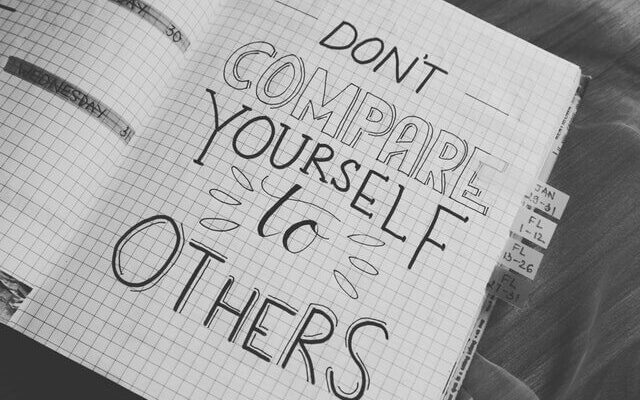 DAY 30
WEDNESDAY 31
DON'T
COMPARE
YOURSELF
to
OTHERS
JAN
29-31
FL
1-12
FL
13-26
FL
27-31